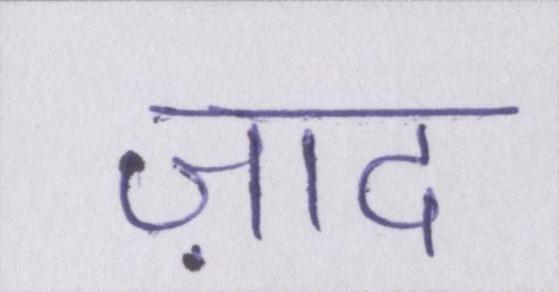 ज़ाद